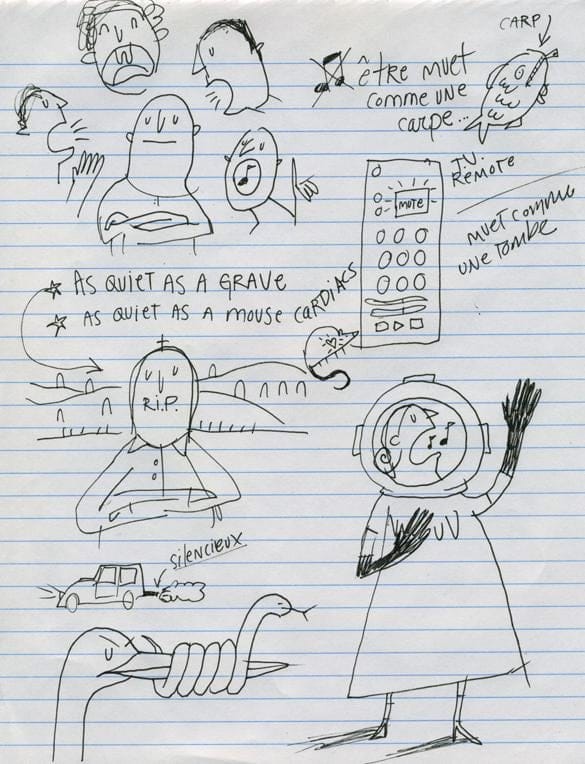 CARP
être muet
comme une
carpe...
T.V.
Remote
MUTE
muet comme
une tombe
AS QUIET AS A GRAVE
AS QUIET AS A MOUSE CARDIACS
R.I.P.
silencieux